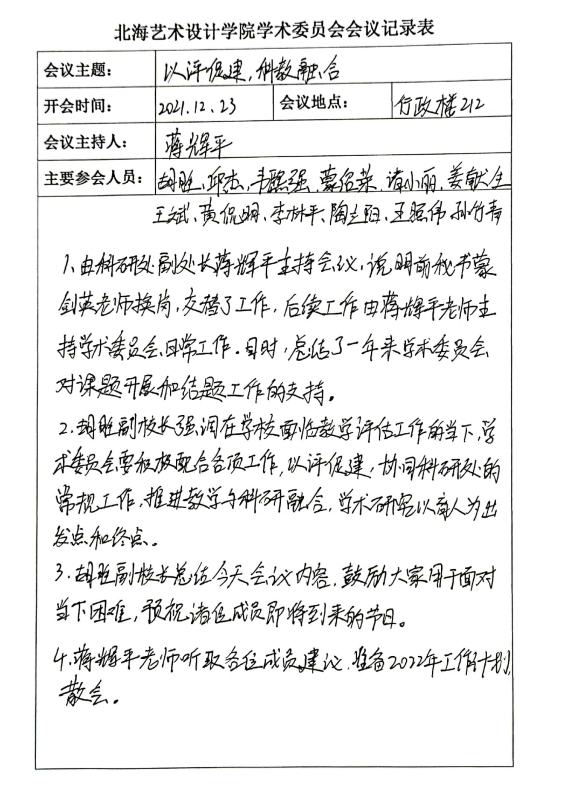 北海艺术设计学院学术委员会会议记录表
会议主题： 以评促建，科教融合
开会时间： 2021.12.23 会议地点： 行政楼212
会议主持人： 蒋辉平
主要参会人员： 胡胜、邱杰、韦熙强、蒙绍荣、诸小丽、姜献生
王斌、黄侃明、李林平、陶立阳、王照伟 孙竹青
1、由科研处副处长蒋辉平主持会议，说明前秘书蒙
剑英老师换岗，交替了工作，后续工作由蒋辉平老师主
持学术委员会日常工作。同时，总结了一年来学术委员会
对课题开展和结题工作的支持。
2、胡胜副校长强调在学校面临教学评估工作的当下，学
术委员会要积极配合各项工作，以评促建，协同科研处的
常规工作，推进教学与科研融合，学术研究以育人为出
发点和终点。
3、胡胜副校长总结今天会议内容，鼓励大家勇于面对
当下困难，预祝诸位成员即将到来的节日。
4、蒋辉平老师听取各位成员建议，准备2022年工作计划，
散会。